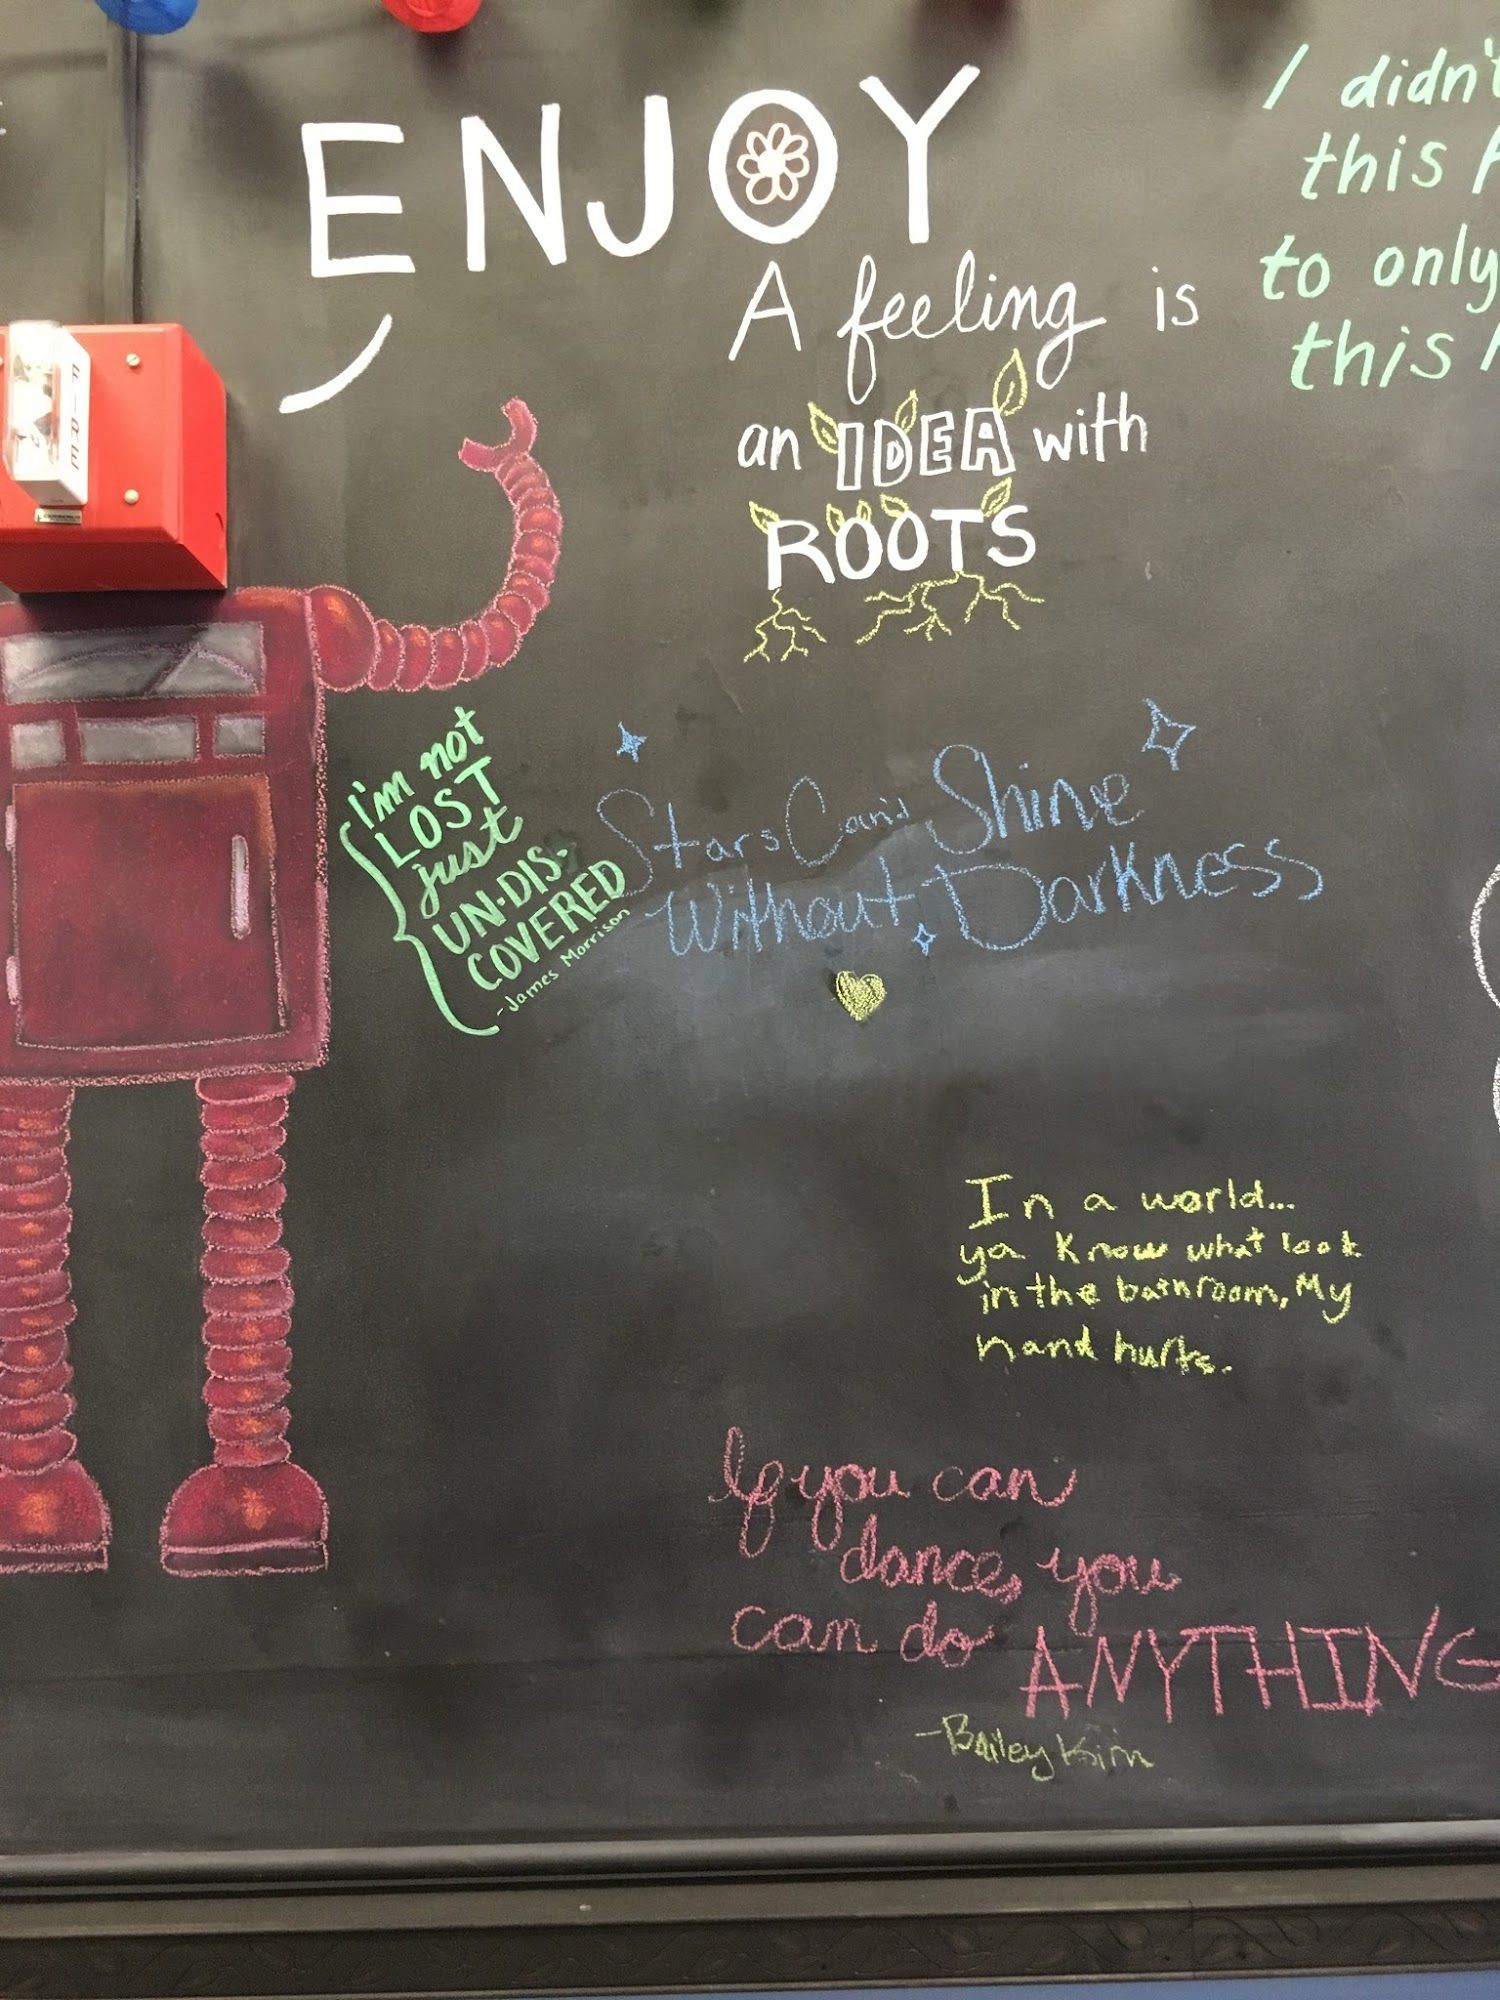 ENJOY
A feeling is
an IDEA with
ROOTS
I didn't
this
to only
this
FIRE
I'm not
LOST
just
UN-DIS-
COVERED
-James Morrison
Stars Can't Shine
Without Darkness
In a world...
ya know what look
in the bathroom, My
hand hurts.
If you can
dance, you
can do ANYTHING
-Bailey Kim